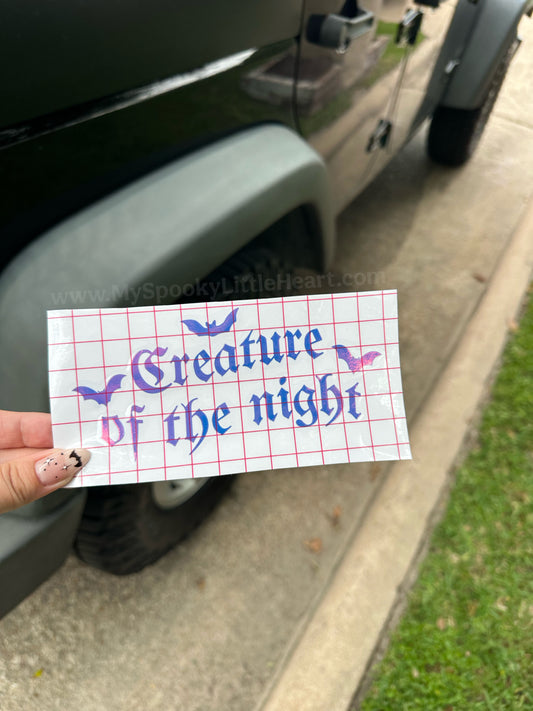 www.MySpookyLittleHeart.com
Creature
of the night